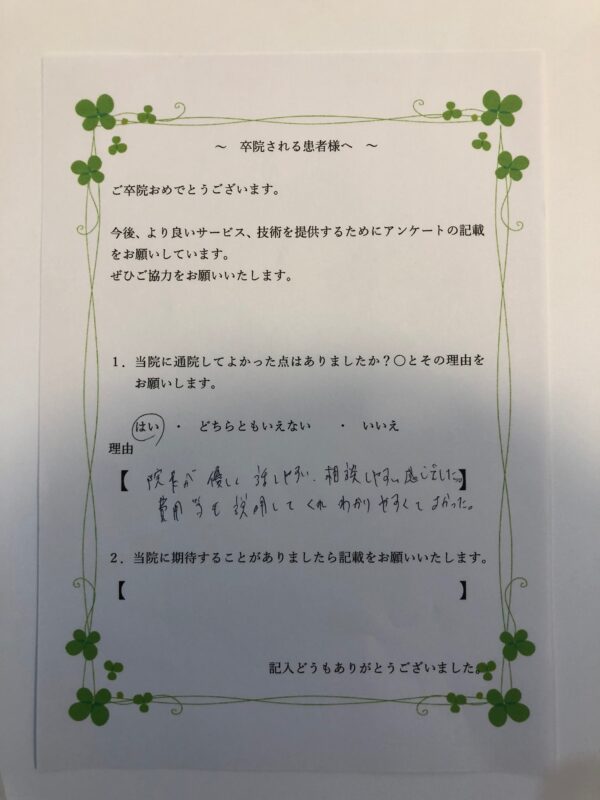 ～　卒院される患者様へ　～
ご卒院おめでとうございます。
今後、より良いサービス、技術を提供するためにアンケートの記載
をお願いしています。
ぜひご協力をお願いいたします。
１．当院に通院してよかった点はありましたか？〇とその理由を
お願いします。
はい　・　どちらともいえない　・　いいえ
理由
【 院長が 優しく 話しやすい、相談しやすい感じでした。】
費用等も 説明して くれ わかり やすくて よかった。
２．当院に期待することがありましたら記載をお願いいたします。
【　】
記入どうもありがとうございました。